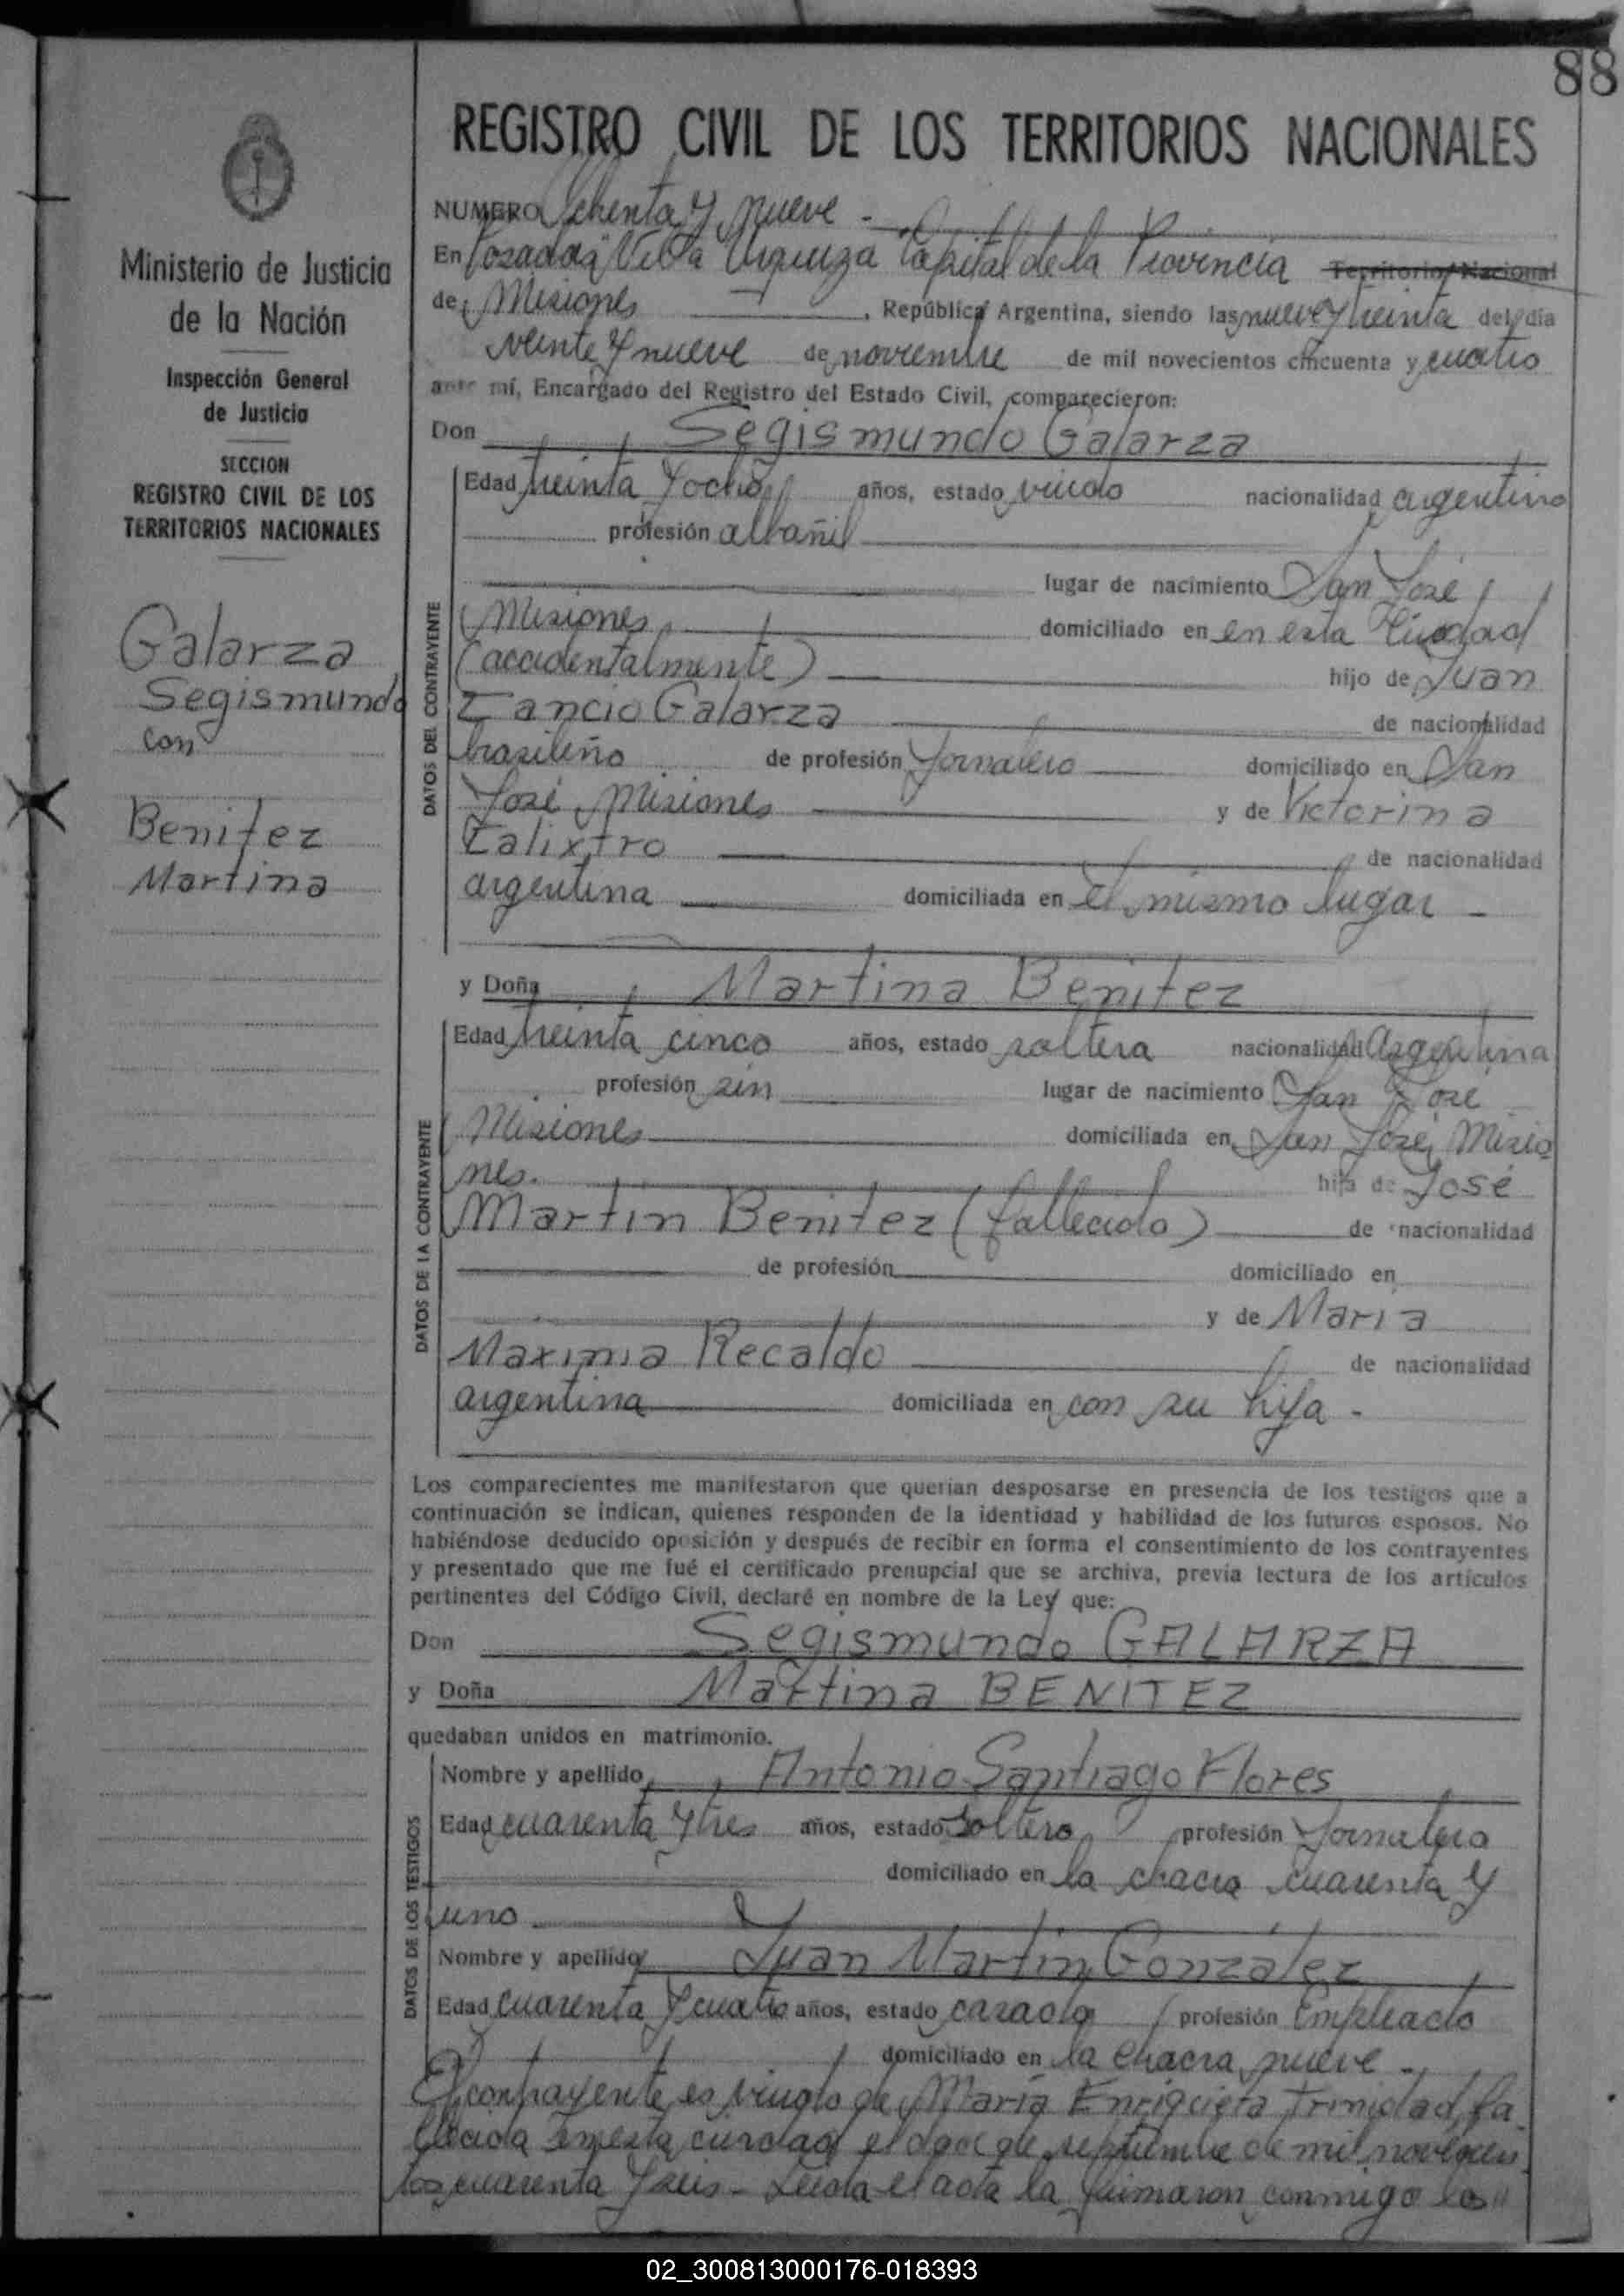 88
Ministerio de Justicia
de la Nación
Inspección General
de Justicia
SECCION
REGISTRO CIVIL DE LOS
TERRITORIOS NACIONALES
Galarza
Segismundo
con
Benitez
Martina
REGISTRO CIVIL DE LOS TERRITORIOS NACIONALES
NUMERO Ochenta y nueve -
En Posadas Villa Urquiza Capital de la Provincia Territorio Nacional
de Misiones, República Argentina, siendo las nueve y treinta del día
veinte y nueve de noviembre de mil novecientos cincuenta y cuatro
ante mí, Encargado del Registro del Estado Civil, comparecieron:
Don Segismundo Galarza
DATOS DEL CONTRAYENTE
Edad treinta y ocho años, estado viudo nacionalidad argentino
profesión albañil
lugar de nacimiento San José
Misiones domiciliado en en esta Ciudad
(accidentalmente) hijo de Juan
Galarza de nacionalidad
brasileño de profesión Jornalero domiciliado en San
José Misiones y de Victorina
Calixtro de nacionalidad
argentina domiciliada en el mismo lugar -
y Doña Martina Benitez
DATOS DE LA CONTRAYENTE
Edad treinta cinco años, estado soltera nacionalidad Argentina
profesión sin lugar de nacimiento San José
Misiones domiciliada en San José Misio
nes. hija de José
Martin Benitez (fallecido) de nacionalidad
de profesión domiciliado en
y de Maria
Maximia Recaldo de nacionalidad
argentina domiciliada en con su hija -
Los comparecientes me manifestaron que querían desposarse en presencia de los testigos que a
continuación se indican, quienes responden de la identidad y habilidad de los futuros esposos. No
habiéndose deducido oposición y después de recibir en forma el consentimiento de los contrayentes
y presentado que me fué el certificado prenupcial que se archiva, previa lectura de los artículos
pertinentes del Código Civil, declaré en nombre de la Ley que:
Don Segismundo GALARZA
y Doña Martina BENITEZ
quedaban unidos en matrimonio.
DATOS DE LOS TESTIGOS
Nombre y apellido Antonio Santiago Flores
Edad cuarenta y tres años, estado soltero profesión Jornalero
domiciliado en la chacra cuarenta y
uno
Nombre y apellido Juan Martin González
Edad cuarenta y cuatro años, estado casado profesión Empleado
domiciliado en la chacra nueve -
El contrayente es viudo de María Enriqueta Trinidad, fa
llecida en esta ciudad el doce de septiembre de mil novecien
tos cuarenta y seis - Leida el acta la firmaron conmigo los "
02_300813000176-018393